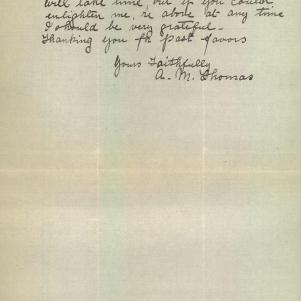 will take time, but if you could
enlighten me, re above at any time
I should be very grateful -
Thanking you for past favors
Yours Faithfully
A. M. Thomas